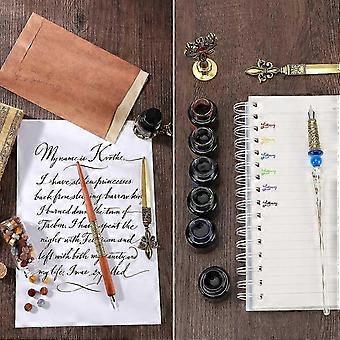 My name is Kvothe.
I have stolen princesses
back from sleeping barrow kin
I burned down the town of
Trebon. I have spent the
night with Felurian and
left with both my sanity and
my life. I was expelled